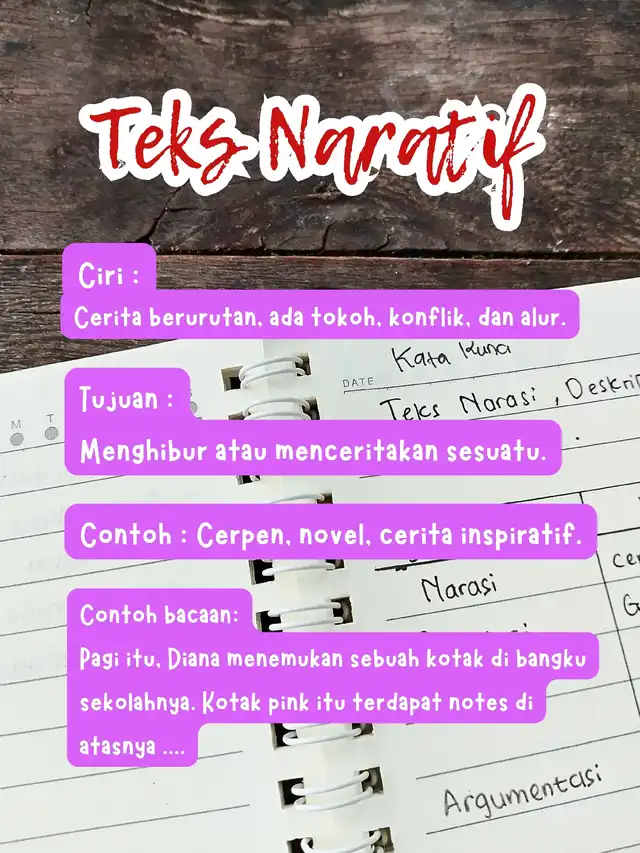 Teks Naratif
Ciri :
Cerita berurutan, ada tokoh, konflik, dan alur.
Kata Kunci
DATE
Teks Narasi , Deskri
M T
Tujuan :
Menghibur atau menceritakan sesuatu.
Contoh : Cerpen, novel, cerita inspiratif.
Narasi
Contoh bacaan:
Pagi itu, Diana menemukan sebuah kotak di bangku
sekolahnya. Kotak pink itu terdapat notes di
atasnya ....
Argumentasi